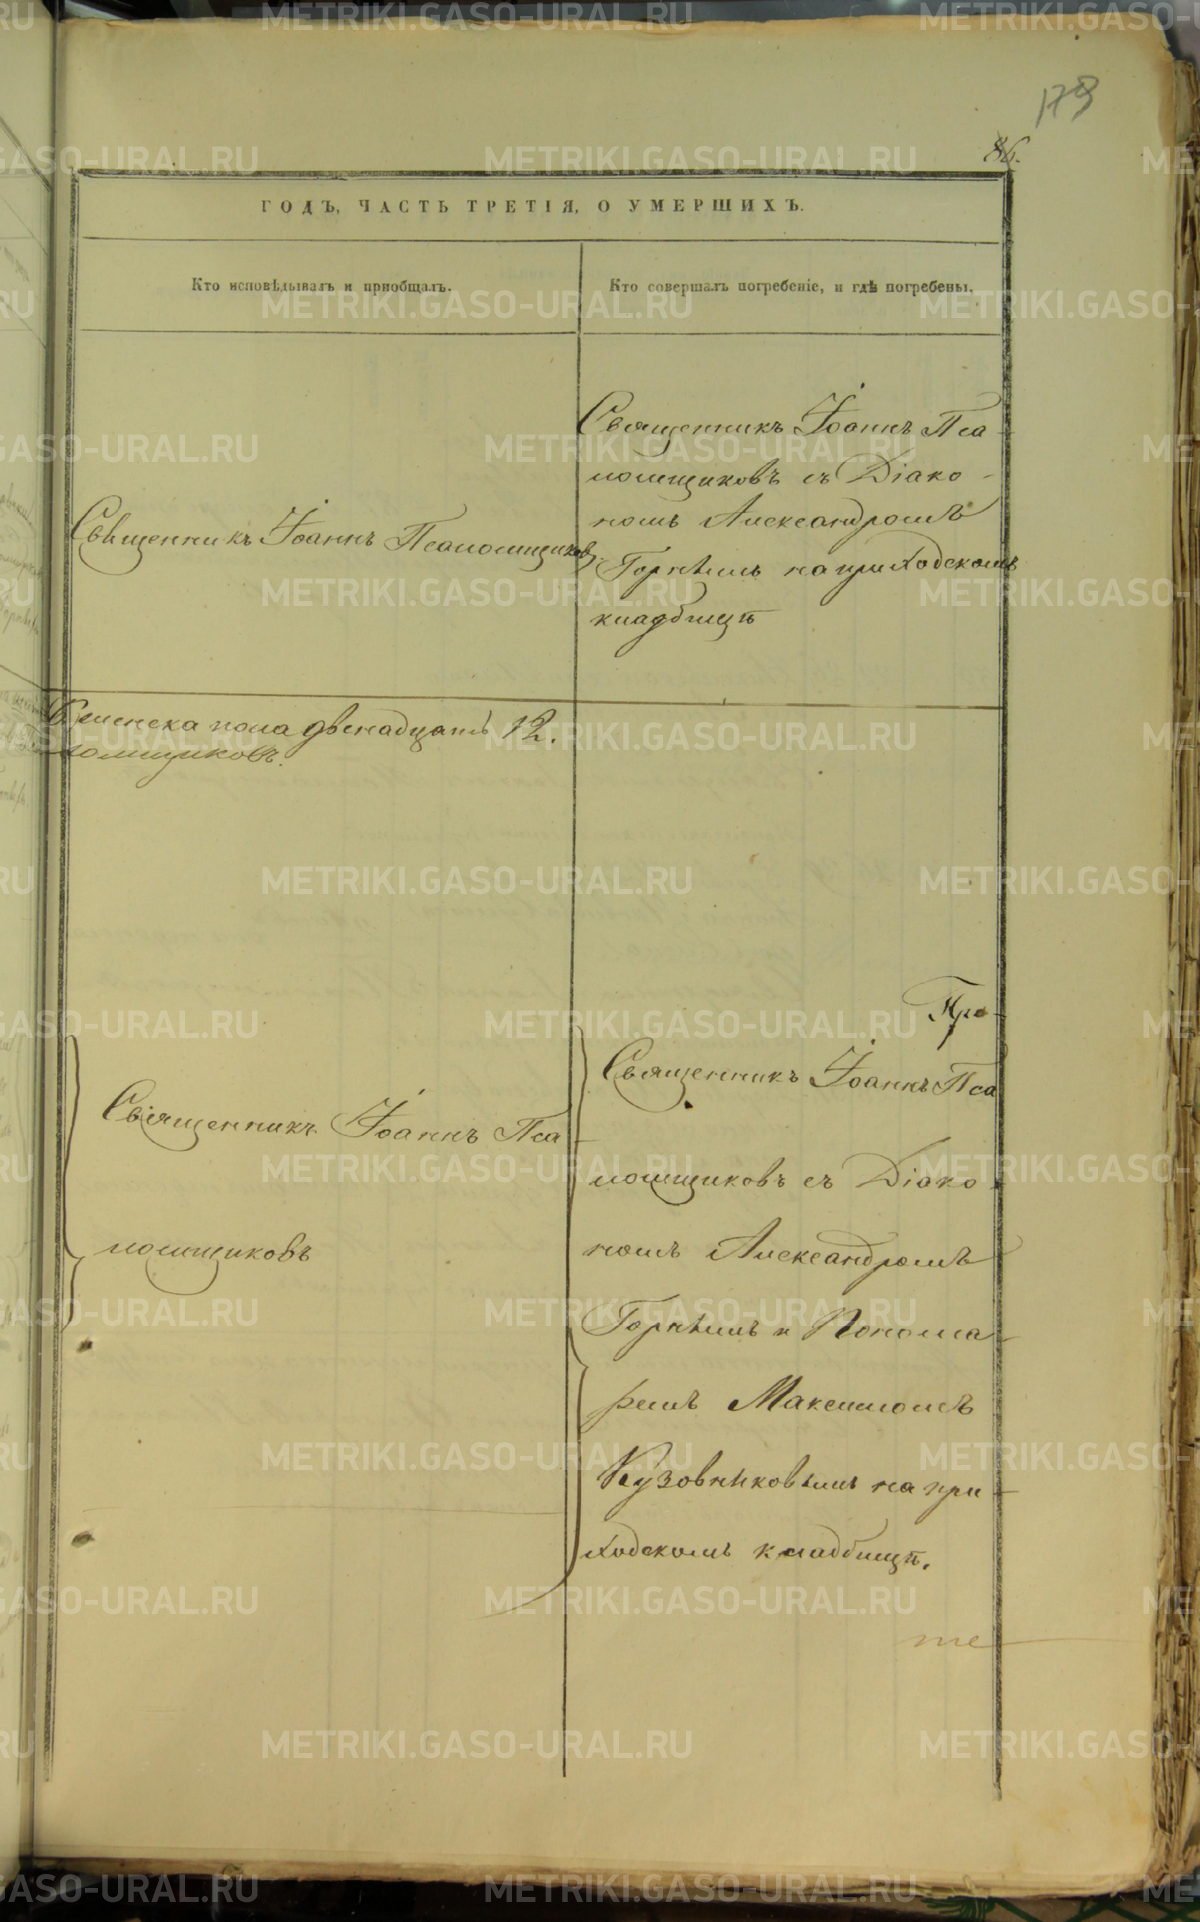 178
86.
ГОДЪ, ЧАСТЬ ТРЕТІЯ, О УМЕРШИХЪ.
Кто исповѣдывалъ и приобщалъ.
Кто совершалъ погребеніе, и гдѣ погребены.
Священникъ Іоаннъ Псаломщиковъ
Священникъ Іоаннъ Пса-
ломщиковъ съ Діако-
номъ Александромъ
Горнымъ на приходскомъ
кладбищѣ
женска пола двенадцать 12.
ломщиковъ.
Священникъ Іоаннъ Пса-
ломщиковъ
Пре-
Священникъ Іоаннъ Пса
ломщиковъ съ Діако-
номъ Александромъ
Горнымъ и Понома-
ремъ Максимомъ
Кузовниковымъ на при-
ходскомъ кладбищѣ.
те
METRIKI.GASO-URAL.RU